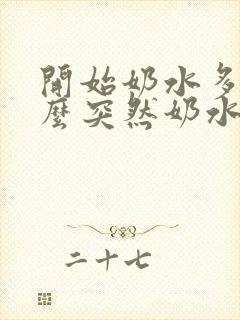 開始奶水多
麼突然奶水
二十七